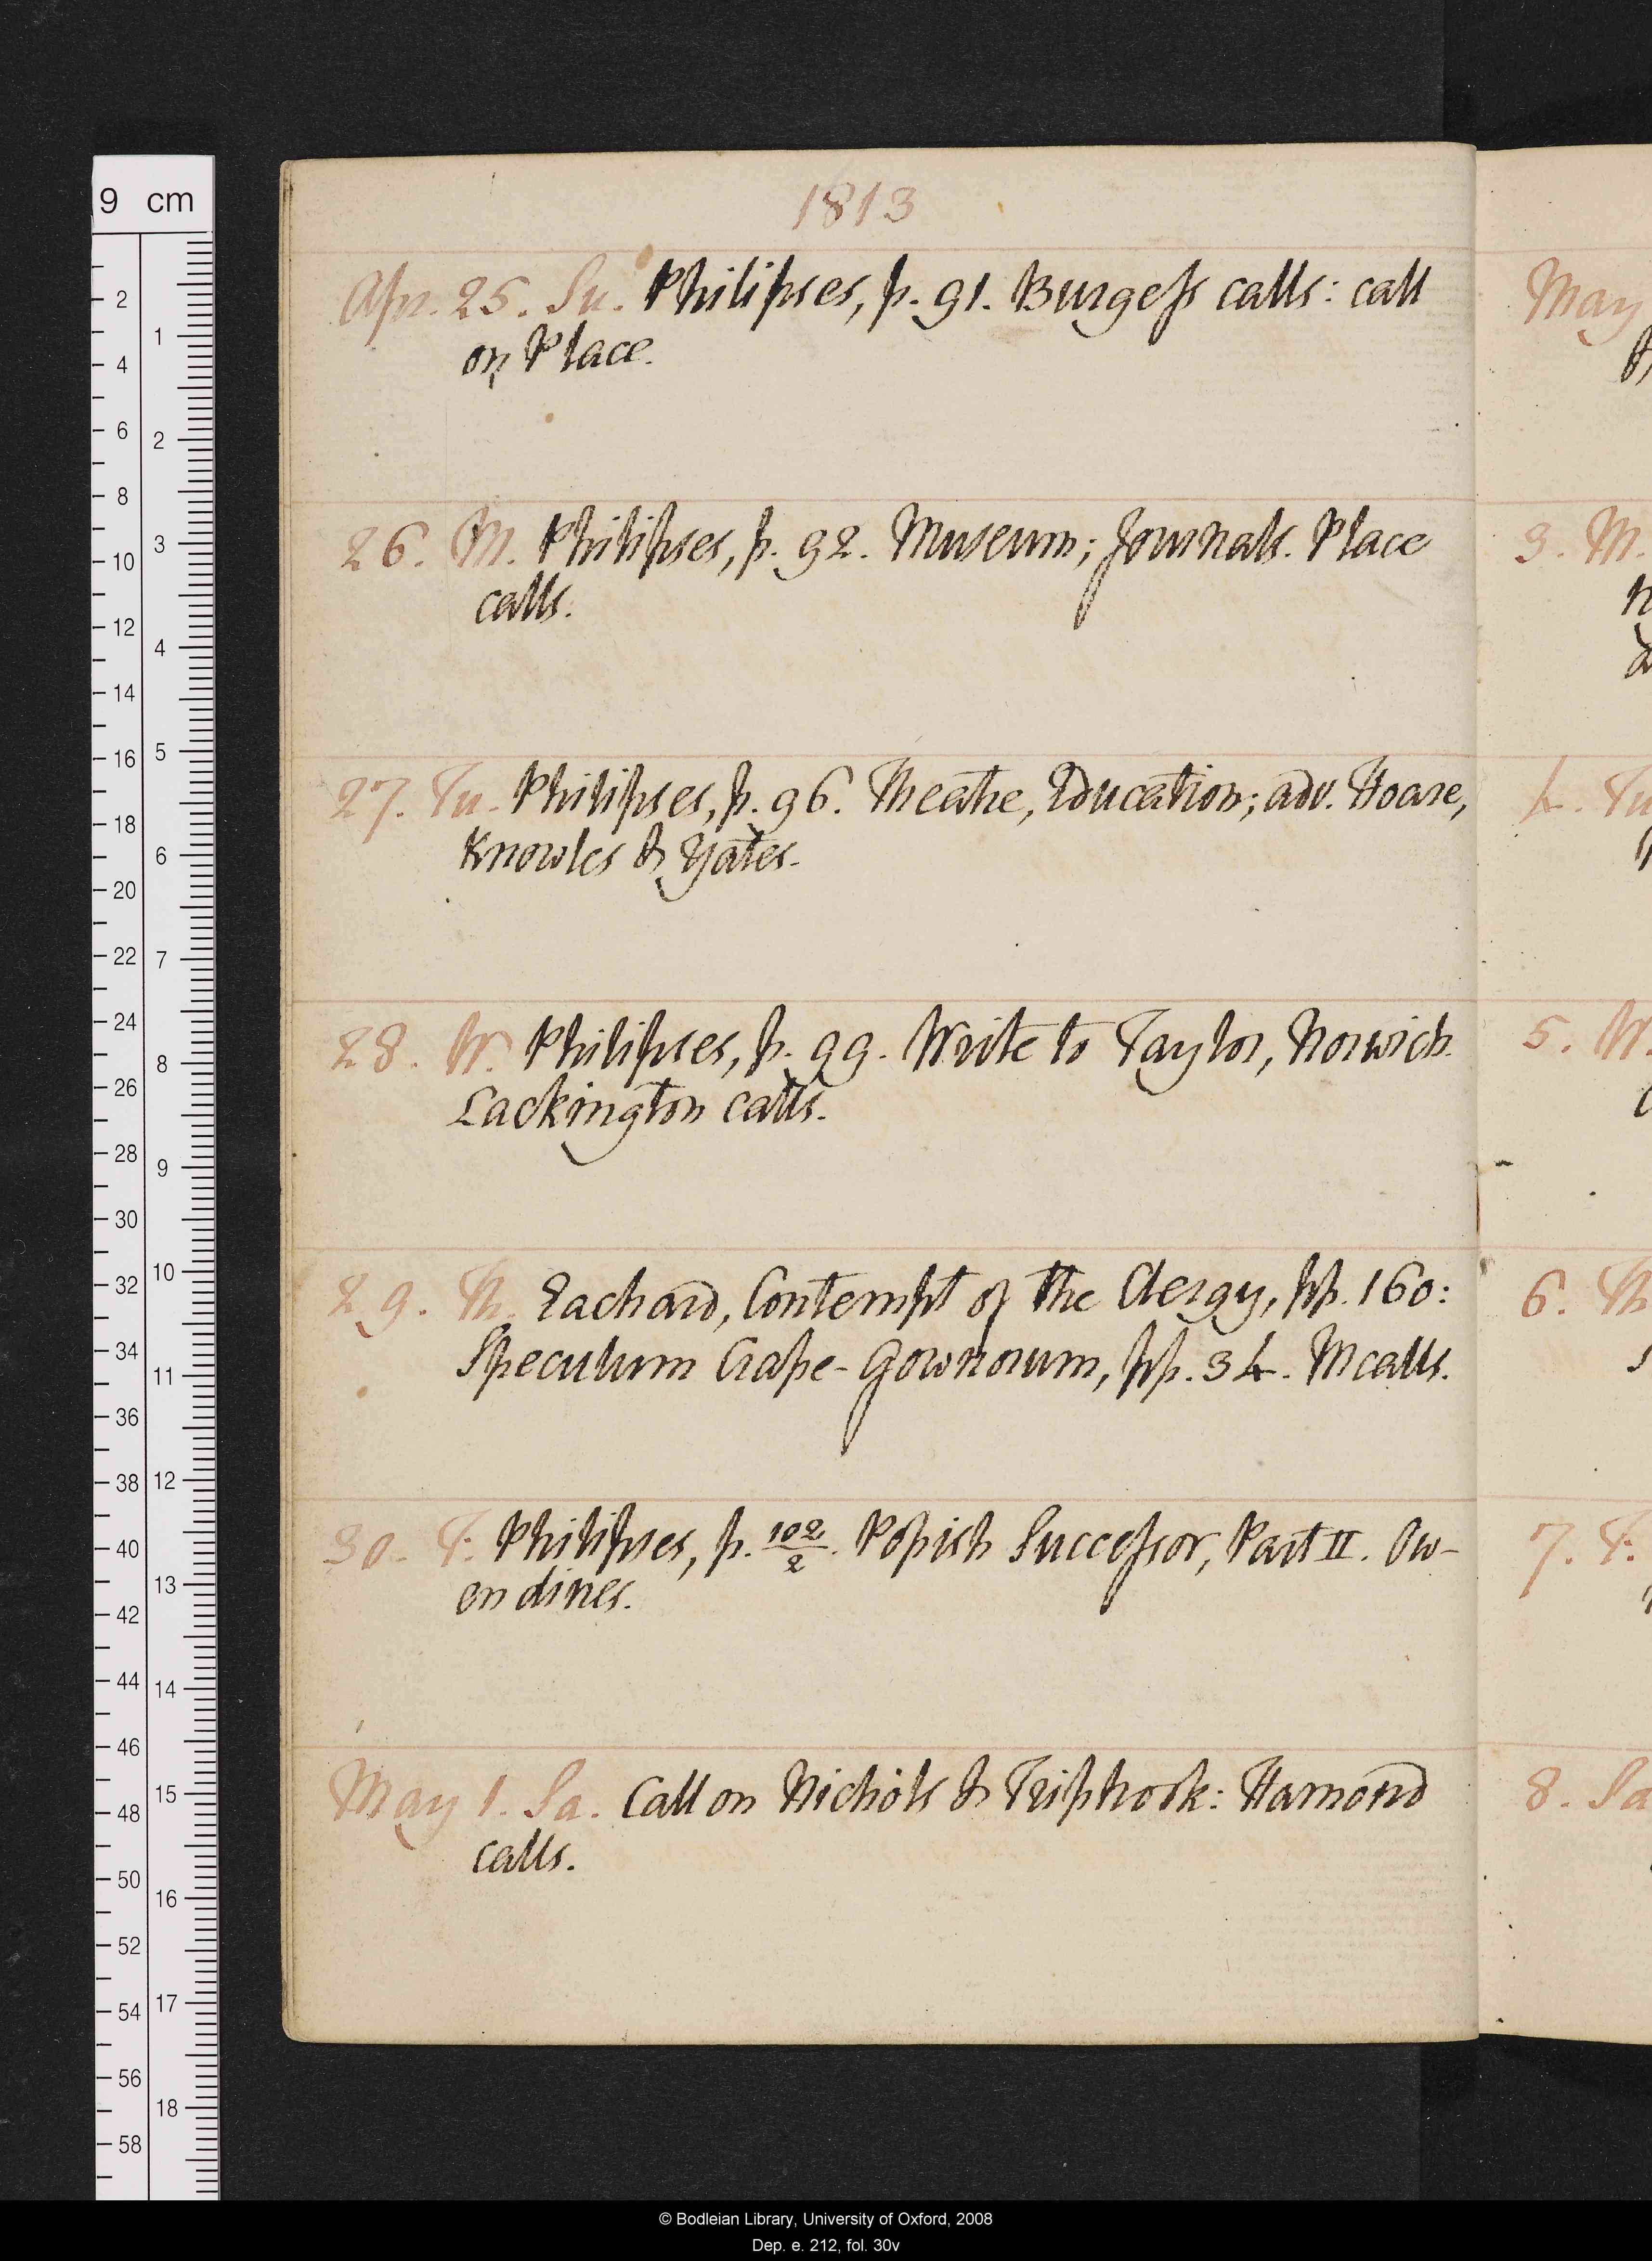 1813
Apr. 25. Su. Philipses, p. 91. Burgess calls: call
on Place.
26. M. Philipses, p. 92. Museum; Journals. Place
calls.
27. Tu. Philipses, p. 96. Theatre, Education; adv. Hoare,
Knowles & Yates.
28. W. Philipses, p. 99. Write to Taylor, Norwich.
Lackington calls.
29. Th. Eachard, Contempt of the Clergy, pp. 160:
Speculum Crape-Gownorum, pp. 34. M calls.
30. F. Philipses, p. 102/2. Popish Successor, Part II. Ow-
en dines.
May 1. Sa. Call on Nichols & Triphook: Hamond
calls.
May
3. M.
4. Tu
5. W.
6. Th
7. F.
8. Sa
9 cm
2
4
6
8
10
12
14
16
18
20
22
24
26
28
30
32
34
36
38
40
42
44
46
48
50
52
54
56
58
1
2
3
4
5
6
7
8
9
10
11
12
13
14
15
16
17
18
© Bodleian Library, University of Oxford, 2008
Dep. e. 212, fol. 30v